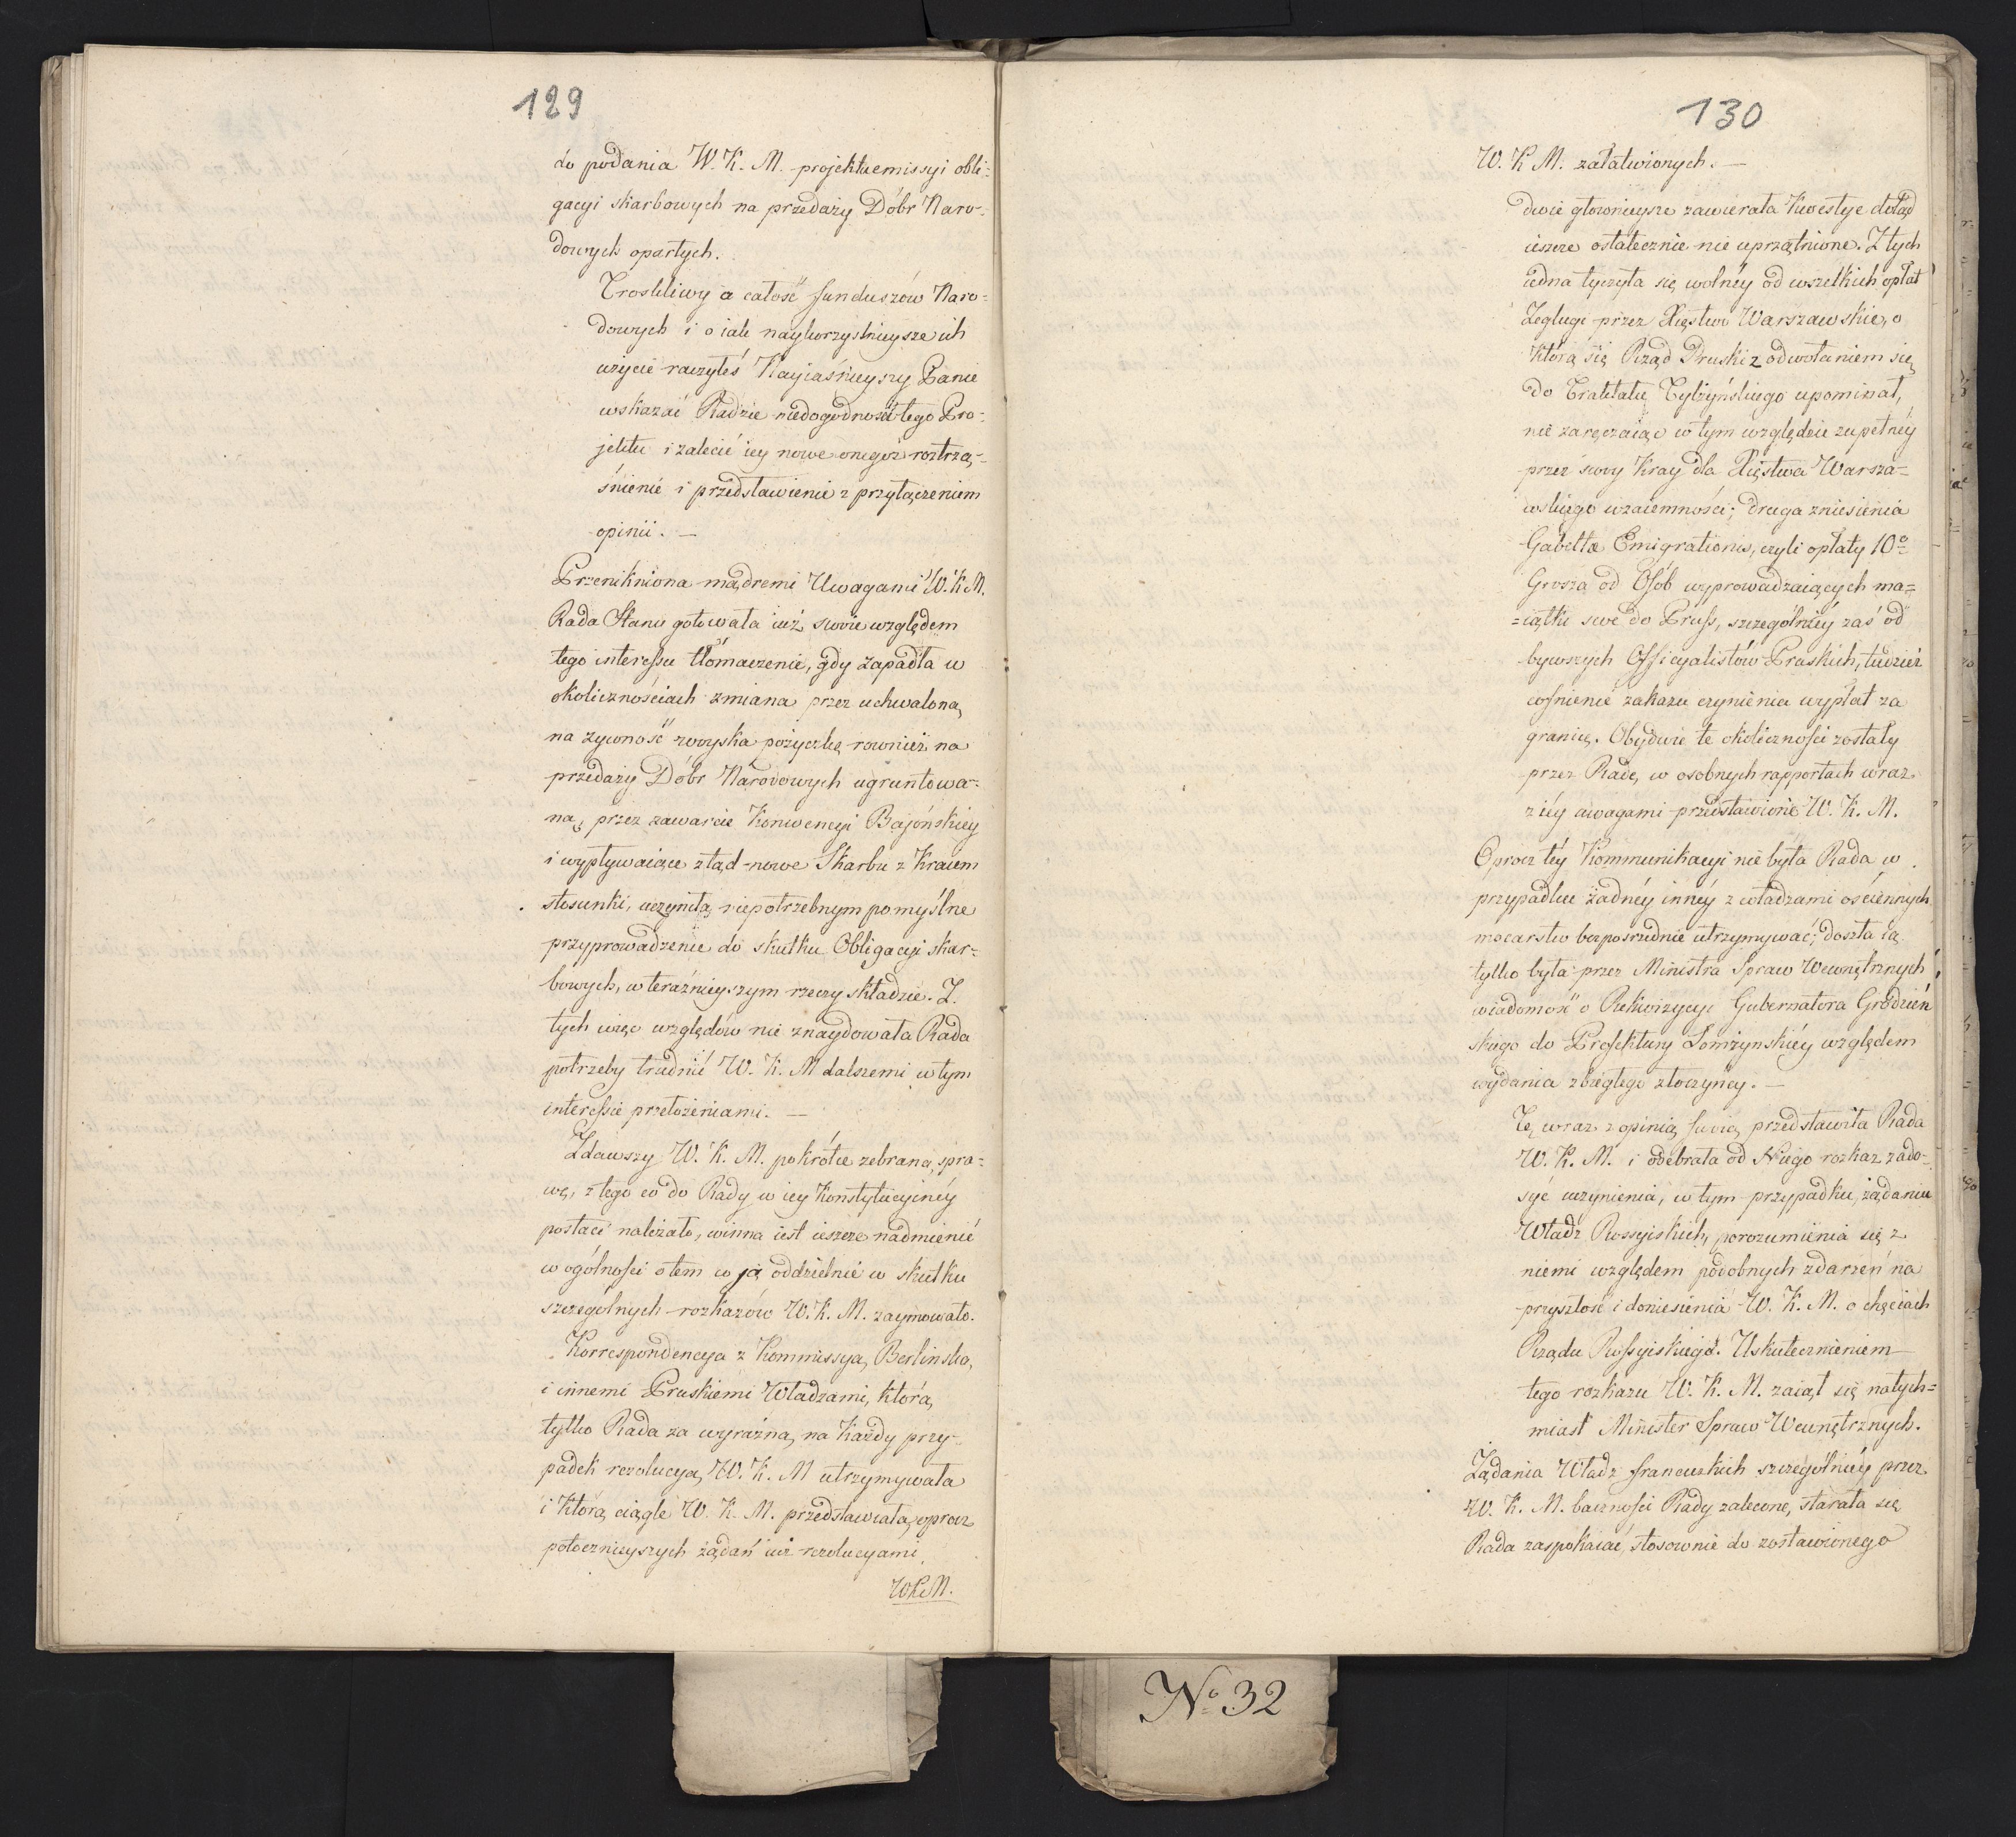 129
do podania W. K. M. projektu emissyi obli=
gacyi skarbowych na przedaży Dóbr Naro-
dowych opartych.
Troskliwy o całość funduszów Naro=
dowych i o iak naykorzystnieysze ich
użycie raczyłeś Nayiaśnieyszy Panie
wskazać Radzie niedogodność tego Pro=
jektu i zalecić iey nowe onegoż roztrzą-
śnienie i przedstawienie z przyłączeniem
opinii. —
Przenikniona mądremi Uwagami W. K. M.
Rada Stanu gotowała iuż swoie względem
tego interessu tłómaczenie, gdy zapadła w
okolicznościach zmiana przez uchwaloną
na żywność woyska pożyczkę rownież na
przedaży Dóbr Narodowych ugruntowa=
ną, przez zawarcie Konwencyi Bajońskiey
i wypływaiące ztąd nowe Skarbu z Kraiem
stosunki, uczyniła niepotrzebnym pomyślne
przyprowadzenie do skutku Obligacyi skar=
bowych, w teraźnieyszym rzeczy składzie. Z
tych więc względów nie znaydowała Rada
potrzeby trudnić W. K. M. dalszemi w tym
interessie przełożeniami. —
Zdawszy W. K. M. pokrótce zebraną spra=
wę, z tego co do Rady w iey Konstytucyinéy
postaci należało, winna iest ieszcze nadmienić
w ogólności o tem co ją oddzielnie w skutku
szczególnych rozkazów W. K. M. zaymowało.
Korrespondencya z Kommissyą Berlinską
i innemi Pruskiemi Władzami, którą
tylko Rada za wyraźną na Każdy przy-
padek rezolucyą W. K. M utrzymywała
i Którą ciągle W. K. M. przedstawiała, oprocz
potocznieyszych żądań iuż rezolucyami
WKM.
130
W. K M. załatwionych. —
dwie głownieysze zawierała Kwestye dotąd
ieszcze ostatecznie nie uprzątnione. Z tych
iedna tyczyła się wolnéy od wszelkich opłat
Żeglugi przez Xięstwo Warszawskie, o
którą się Rząd Pruski z odwołaniem się
do Traktatu Tylżyńskiego upominał,
nie zaręczaiąc w tym względzie zupełnéy
przez swoy Kray dla Xięstwa Warsza=
wskiego wzaiemności; druga zniesienia
Gabella Emigrationis, czyli opłaty 10o
Grosza od Osób wyprowadzaiących ma=
=iątki swe do Pruss, szczególniéy zaś od
bywszych Officyalistów Pruskich, tudzież
cofnienie zakazu czynienia wypłat za
granicę. Obydwie te okoliczności zostały
przez Radę w osobnych rapportach wraz
z iéy uwagami przedstawione W. K. M.
Oprocz téy Kommunikacyi nie była Rada w
przypadku żadnéy innéy z władzami ościennych
mocarstw bezpośrednie utrzymywać; doszła ią
tylko była przez Ministra Spraw Wewnętrznych
wiadomość o Rekwizycyi Gubernatora Grodzień
skiego do Prefektury Łomżynskiéy względem
wydania zbiegłego złoczyńcy. —
Tę wraz z opinią swoią przedstawiła Rada
W. K. M. i odebrała od Niego rozkaz zado-
syć uczynienia, w tym przypadku, żądaniu
Władz Rossyiskich, porozumienia się z
niemi względem podobnych zdarzeń na
przyszłość i doniesienia W. K. M. o chęciach
Rządu Rossyiskiego. Uskutecznieniem
tego rozkazu W. K. M. zaiął się natych=
miast Minister Spraw Wewnętrznych.
Żądania Władz francuzkich szczególniéy przez
W. K. M. baczności Rady zalecone, starała się
Rada zaspokaiać, stosownie do zostawionego
No 32